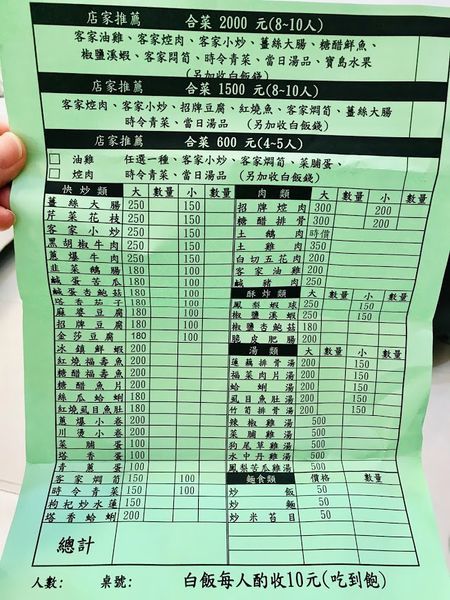 店家推薦 合菜 2000 元(8~10人)
客家油雞、客家焢肉、客家小炒、薑絲大腸、糖醋鮮魚、
椒鹽溪蝦、客家悶筍、時令青菜、當日湯品、寶島水果
(另加收白飯錢)
店家推薦 合菜 1500 元(8~10人)
客家焢肉、客家小炒、招牌豆腐、紅燒魚、客家燜筍、薑絲大腸
時令青菜、當日湯品 (另加收白飯錢)
店家推薦 合菜 600 元(4~5人)
油雞 任選一種、客家小炒、客家燜筍、菜脯蛋、
焢肉 時令青菜、當日湯品(另加收白飯錢)
快炒類 大 數量 小 數量
薑絲大腸 250 150
芹菜花枝 250 150
客家小炒 250 150
黑胡椒牛肉 250 150
蔥爆牛肉 250 150
韭菜鴨腸 180 100
鹹蛋苦瓜 180 100
鹹蛋杏鮑菇 180 100
塔香茄子 180 100
麻婆豆腐 180 100
招牌豆腐 180 100
金莎豆腐 180 100
冰鎮鮮蝦 200
紅燒福壽魚 200
糖醋福壽魚 200
糖醋魚片 200
絲瓜蛤蜊 180
紅燒虱目魚肚 180
蔥爆小卷 200
川燙小卷 200
菜脯蛋 100
塔香蛋 100
青蔥蛋 100
客家燜筍 150 100
時令青菜 150 100
枸杞炒水蓮 150
塔香蛤蜊 200
總計
肉類 大 數量 小 數量
招牌焢肉 300 200
糖醋排骨 300 200
土鵝肉 時價
土雞肉 350
白切五花肉 200
客家油雞 200
鹹豬肉 250
酥炸類 大 數量 小 數量
鳳梨蝦球 250 150
椒鹽溪蝦 200 150
椒鹽杏鮑菇 180
脆皮肥腸 180
湯類 大 數量 小 數量
蓮藕排骨湯 200 150
福菜肉片湯 200 150
蛤蜊湯 200 150
虱目魚肚湯 200 150
竹筍排骨湯 200 150
辣椒雞湯 500
菜脯雞湯 500
狗尾草雞湯 500
水中丹雞湯 500
鳳梨苦瓜雞湯 500
麵食類 價格 數量
炒飯 50
炒麵 50
炒米苔目 50
人數: 桌號: 白飯每人酌收10元(吃到飽)